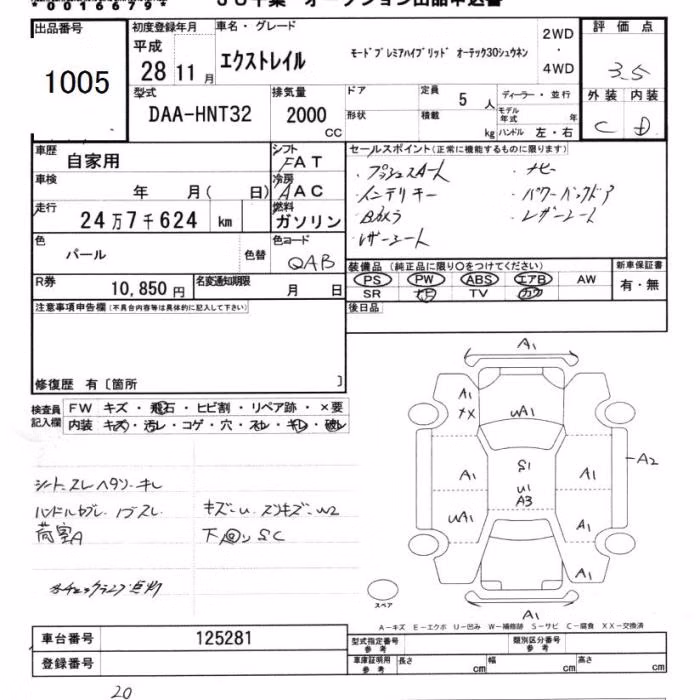 出品番号 1005
初度登録年月 平成 28 11月
車名・グレード エクストレイル モードプレミアハイブリッド オーテック30シュウネン
2WD ・ 4WD
評価点 3.5
外装 内装
C D
型式 DAA-HNT32
排気量 2000 CC
ドア 形状
定員 5 人
積載 kg
ディーラー・並行
モデル年式 年
ハンドル 左・右
車歴 自家用
シフト FAT
車検 年 月( 日)
冷房 AAC
走行 24万7千624 km
燃料 ガソリン
色 パール 色替
色コード QAB
R券 10,850円
名変通知期限 月 日
セールスポイント(正常に機能するものに限ります)
・プッシュスタート ・ナビ
・インテリキー ・パワーバックドア
・Bカメラ ・レザーシート
・レザーシート
装備品 (純正品に限り○をつけてください)
新車保証書
PS PW ABS エアB AW
有・無
SR ナビ TV カワ
後日品
注意事項申告欄(不具合内容等は具体的に記入して下さい)
修復歴 有〔箇所 〕
検査員記入欄
FW キズ・飛石・ヒビ割・リペア跡・×要
内装 キズ・汚レ・コゲ・穴・スレ・キレ・破レ
シートスレ ヘタリ キレ
荷室A
キズ U
下回 SC
A1
A1
UA1
A1
S1
U1
A3
A1
A2
UA1
A1
A1
A1
スペア
A－キズ E－エクボ U－凹み W－補修跡 S－サビ C－腐食 XX－交換済
車台番号 125281
登録番号
型式指定番号 参考
類別区分番号 参考
車庫証明用 参考 長さ cm 幅 cm 高さ cm
20